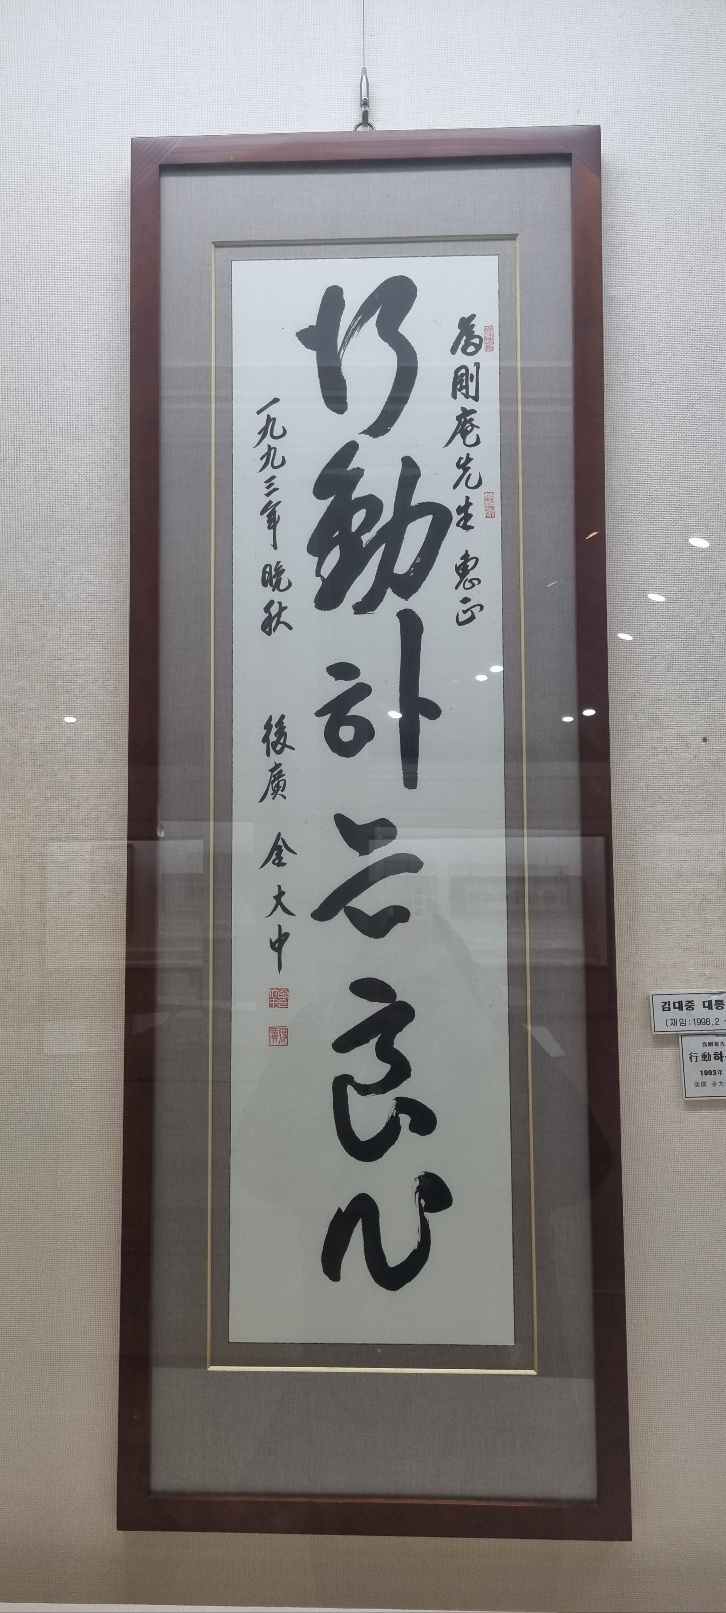 為剛庵先生 惠正
行動하는良心
一九九三年 晩秋 後廣 金大中
김대중 대통
(재임:1998.2
爲剛菴先
行動하
1993年
後廣 金大